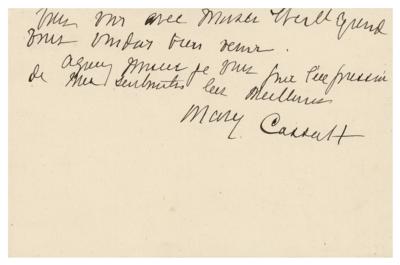 vous voir avec
vous voudrez bien venir.
Agréez je vous prie l'expression
de mes sentiments les meilleurs
Mary Cassatt